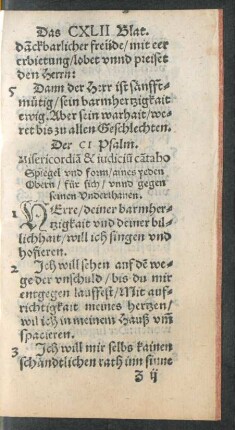 Das CXLII Blat.
dãckbarlicher freüde/mit eer
erbietung/lobet vnnd preiset
den Herrn:
5 Dann der Herr ist sãnfft-
mütig/sein barmhertzigkait
ewig. Aber sein warhait/we-
ret bis zu allen Geschlechten.
Der CI Psalm.
Misericordiã & iudiciũ cãtabo
Spiegel vnd form/aines yeden
Obern/für sich/vnnd gegen
seinen Vnderthanen.
1 HErre/deiner barmher-
tzigkait vnd deiner bil-
lichhait/will ich singen vnd
hofieren.
2 Ich will sehen auf dẽ we-
ge der vnschuld/bis du mir
entgegen lauffest/Mit auf-
richtigkait meines hertzen/
wil ich in meinem Hauß vm̃
spacieren.
3 Ich will mir selbs kainen
schãndtlichen rath inn sinne
Z ij